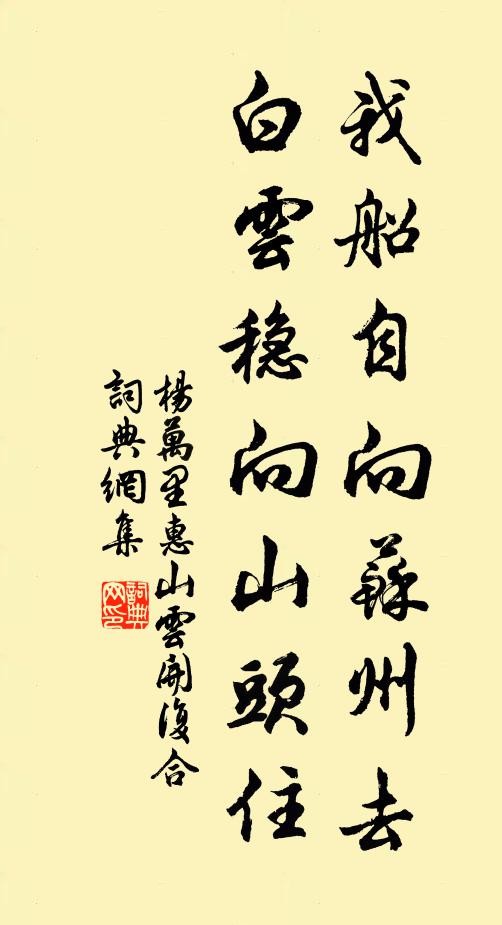 我船自向蘇州去
白雲穏向山頭住
楊萬里惠山雲開復合
詞典網集
詞典網印